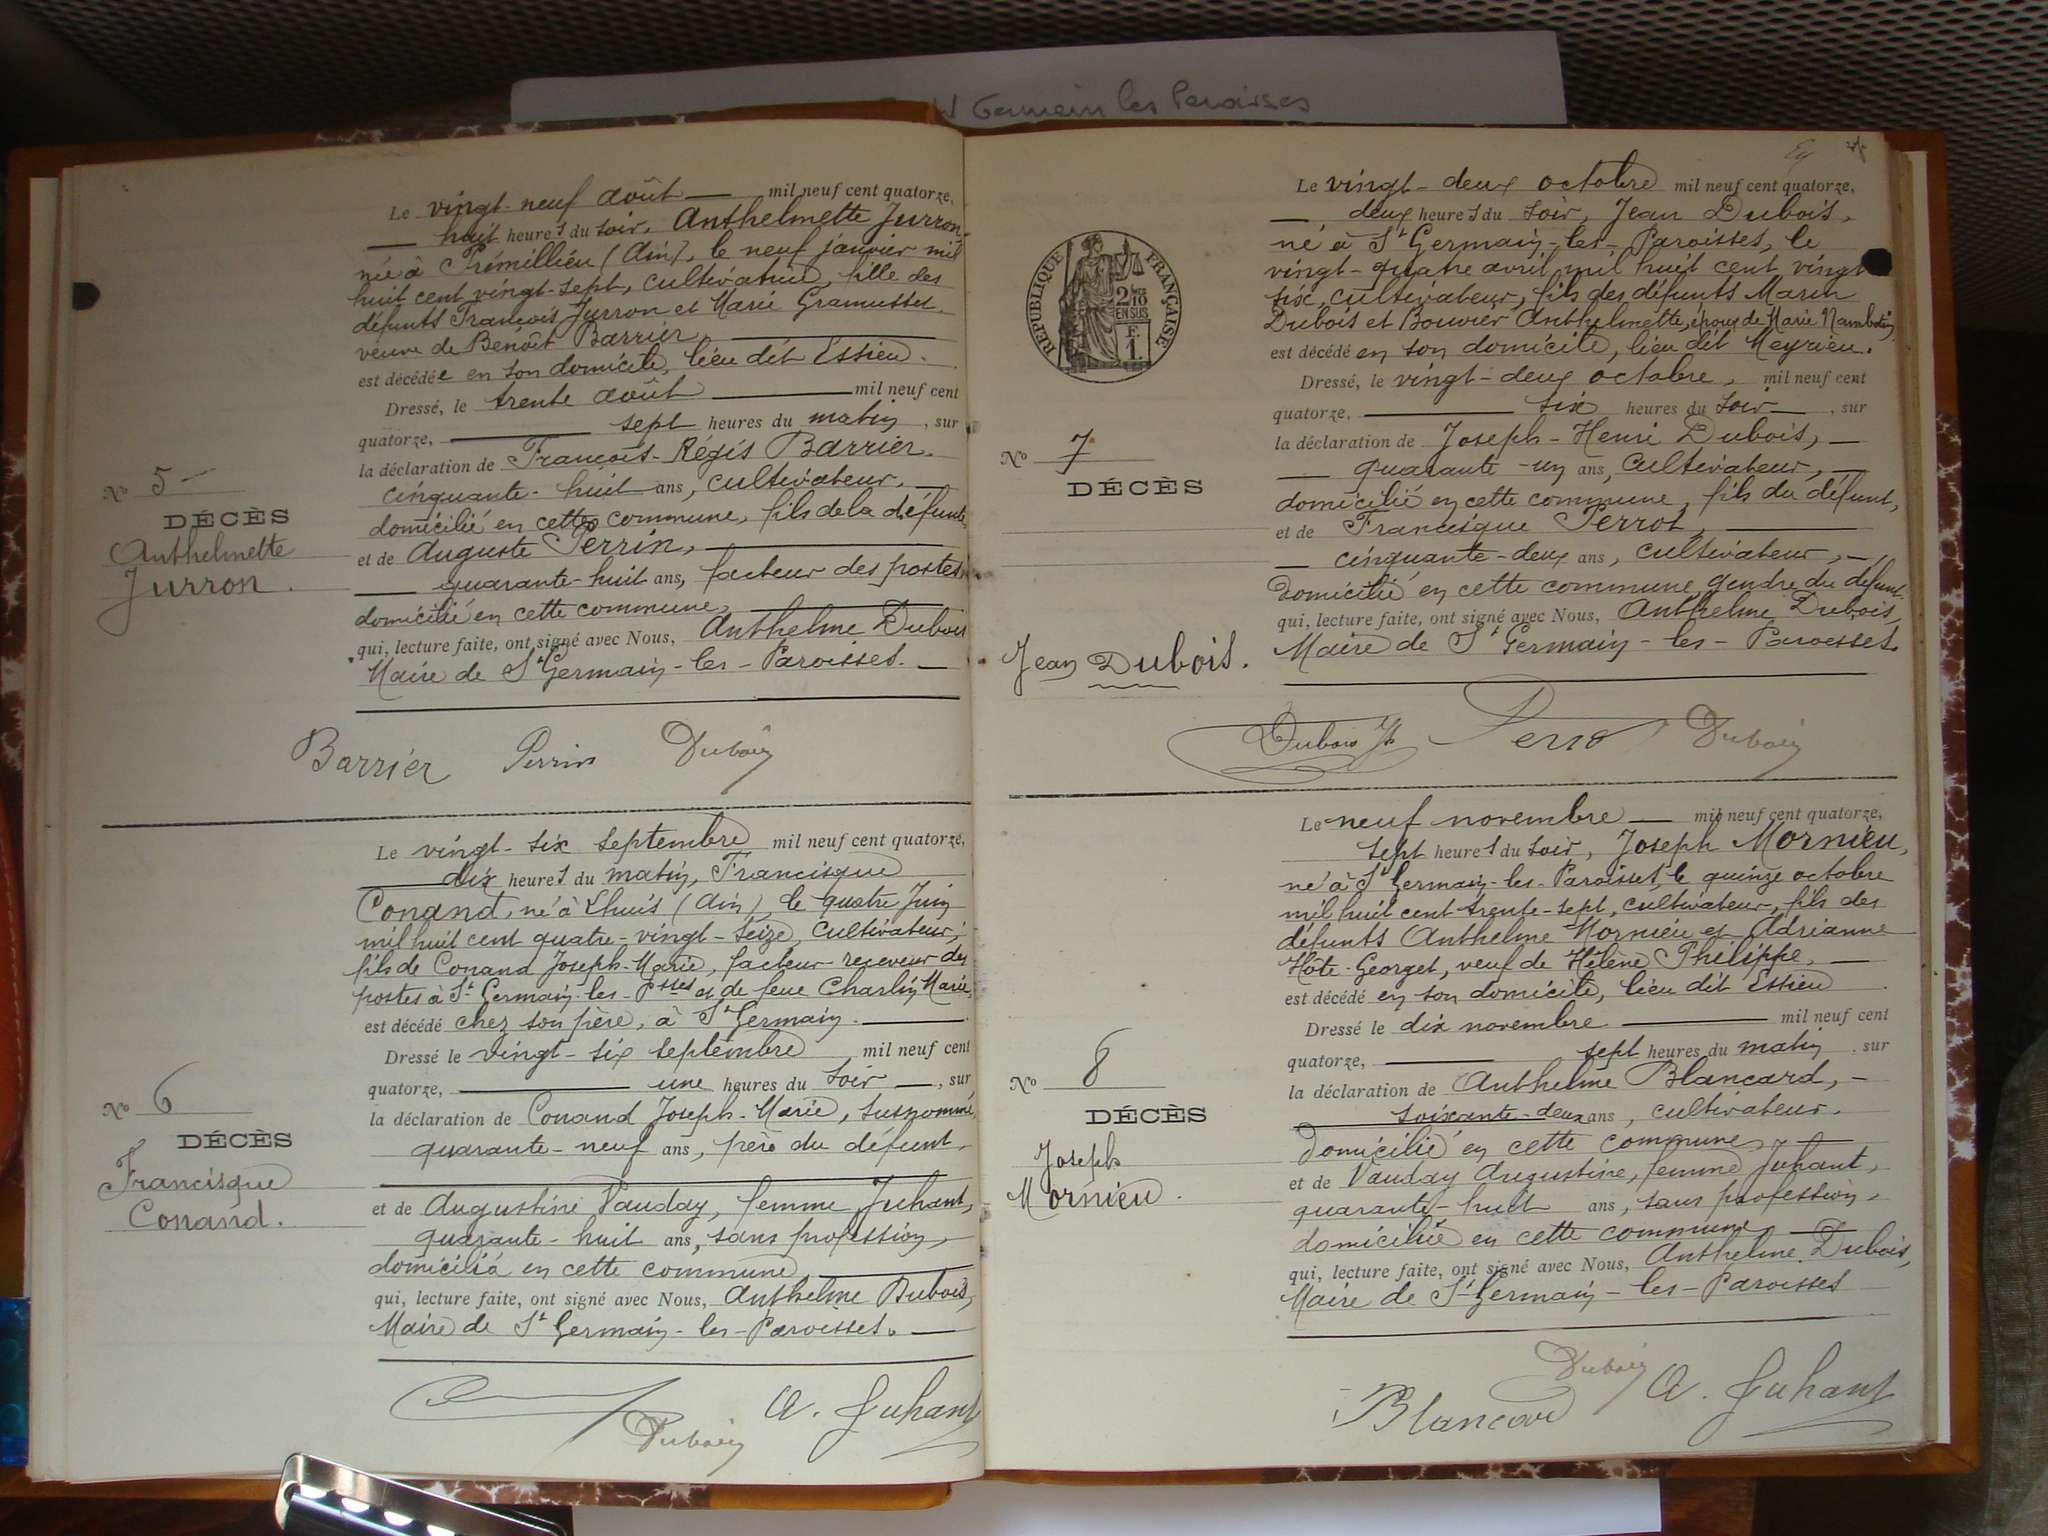 Germain les Paroisses
Le vingt-neuf août mil neuf cent quatorze,
huit heures du soir, Anthelmette Jurron,
née à Prémillieu (Ain), le neuf janvier mil
huit cent vingt-sept, cultivatrice, fille des
défunts François Jurron et Marie Gramusset
veuve de Benoît Barrier
est décédée en son domicile, lieu dit Essieu.
Dressé, le trente août mil neuf cent
quatorze, sept heures du matin, sur
la déclaration de François-Régis Barrier,
cinquante-huit ans, cultivateur,
domicilié en cette commune, fils de la défunte,
et de Auguste Perrin,
quarante-huit ans, facteur des postes,
domicilié en cette commune,
qui, lecture faite, ont signé avec Nous, Anthelme Dubois
Maire de St Germain-les-Paroisses.
No 5
DÉCÈS
Anthelmette
Jurron.
Barrier Perrin Dubois
Le vingt-six septembre mil neuf cent quatorze,
dix heures du matin, Francisque
Conand, né à Lhuis (Ain), le quatre Juin
mil huit cent quatre-vingt-seize, cultivateur,
fils de Conand Joseph-Marie, facteur-receveur des
postes à St Germain-les-Psses et de feue Charlin Marie,
est décédé chez son père, à St Germain.
Dressé le vingt-six septembre mil neuf cent
quatorze, une heures du soir, sur
la déclaration de Conand Joseph-Marie, susnommé,
quarante-neuf ans, père du défunt,
et de Augustine Vauday, femme Juhant,
quarante-huit ans, sans profession,
domiciliée en cette commune
qui, lecture faite, ont signé avec Nous, Anthelme Dubois,
Maire de St Germain-les-Paroisses.
No 6
DÉCÈS
Francisque
Conand.
Dubois A. Juhant
Le vingt-deux octobre mil neuf cent quatorze,
deux heures du soir, Jean Dubois,
né à St Germain-les-Paroisses, le
vingt-quatre avril mil huit cent vingt
six, cultivateur, fils des défunts Marin
Dubois et Bouvier Anthelmette, époux de Marie Nambotin
est décédé en son domicile, lieu dit Meyrieu.
Dressé, le vingt-deux octobre, mil neuf cent
quatorze, six heures du soir, sur
la déclaration de Joseph-Henri Dubois,
quarante-un ans, cultivateur,
domicilié en cette commune, fils du défunt,
et de Francisque Perrot,
cinquante-deux ans, cultivateur,
domicilié en cette commune, gendre du défunt
qui, lecture faite, ont signé avec Nous, Anthelme Dubois,
Maire de St Germain-les-Paroisses.
RÉPUBLIQUE FRANÇAISE
2/10
EN SUS
F.
1.
No 7
DÉCÈS
Jean Dubois.
Dubois Jh Perrot Dubois
Le neuf novembre mil neuf cent quatorze,
sept heures du soir, Joseph Mornieu,
né à St Germain-les-Paroisses, le quinze octobre
mil huit cent trente-sept, cultivateur, fils des
défunts Anthelme Mornieu et Adrianne
Hôte-Georget, veuf de Hélène Philippe,
est décédé en son domicile, lieu dit Essieu
Dressé le dix novembre mil neuf cent
quatorze, sept heures du matin, sur
la déclaration de Anthelme Blancard,
soixante-deux ans, cultivateur.
domicilié en cette commune,
et de Vauday Augustine, femme Juhant,
quarante-huit ans, sans profession,
domiciliée en cette commune,
qui, lecture faite, ont signé avec Nous, Anthelme Dubois,
Maire de St Germain-les-Paroisses
No 8
DÉCÈS
Joseph
Mornieu.
Blancard Dubois A. Juhant